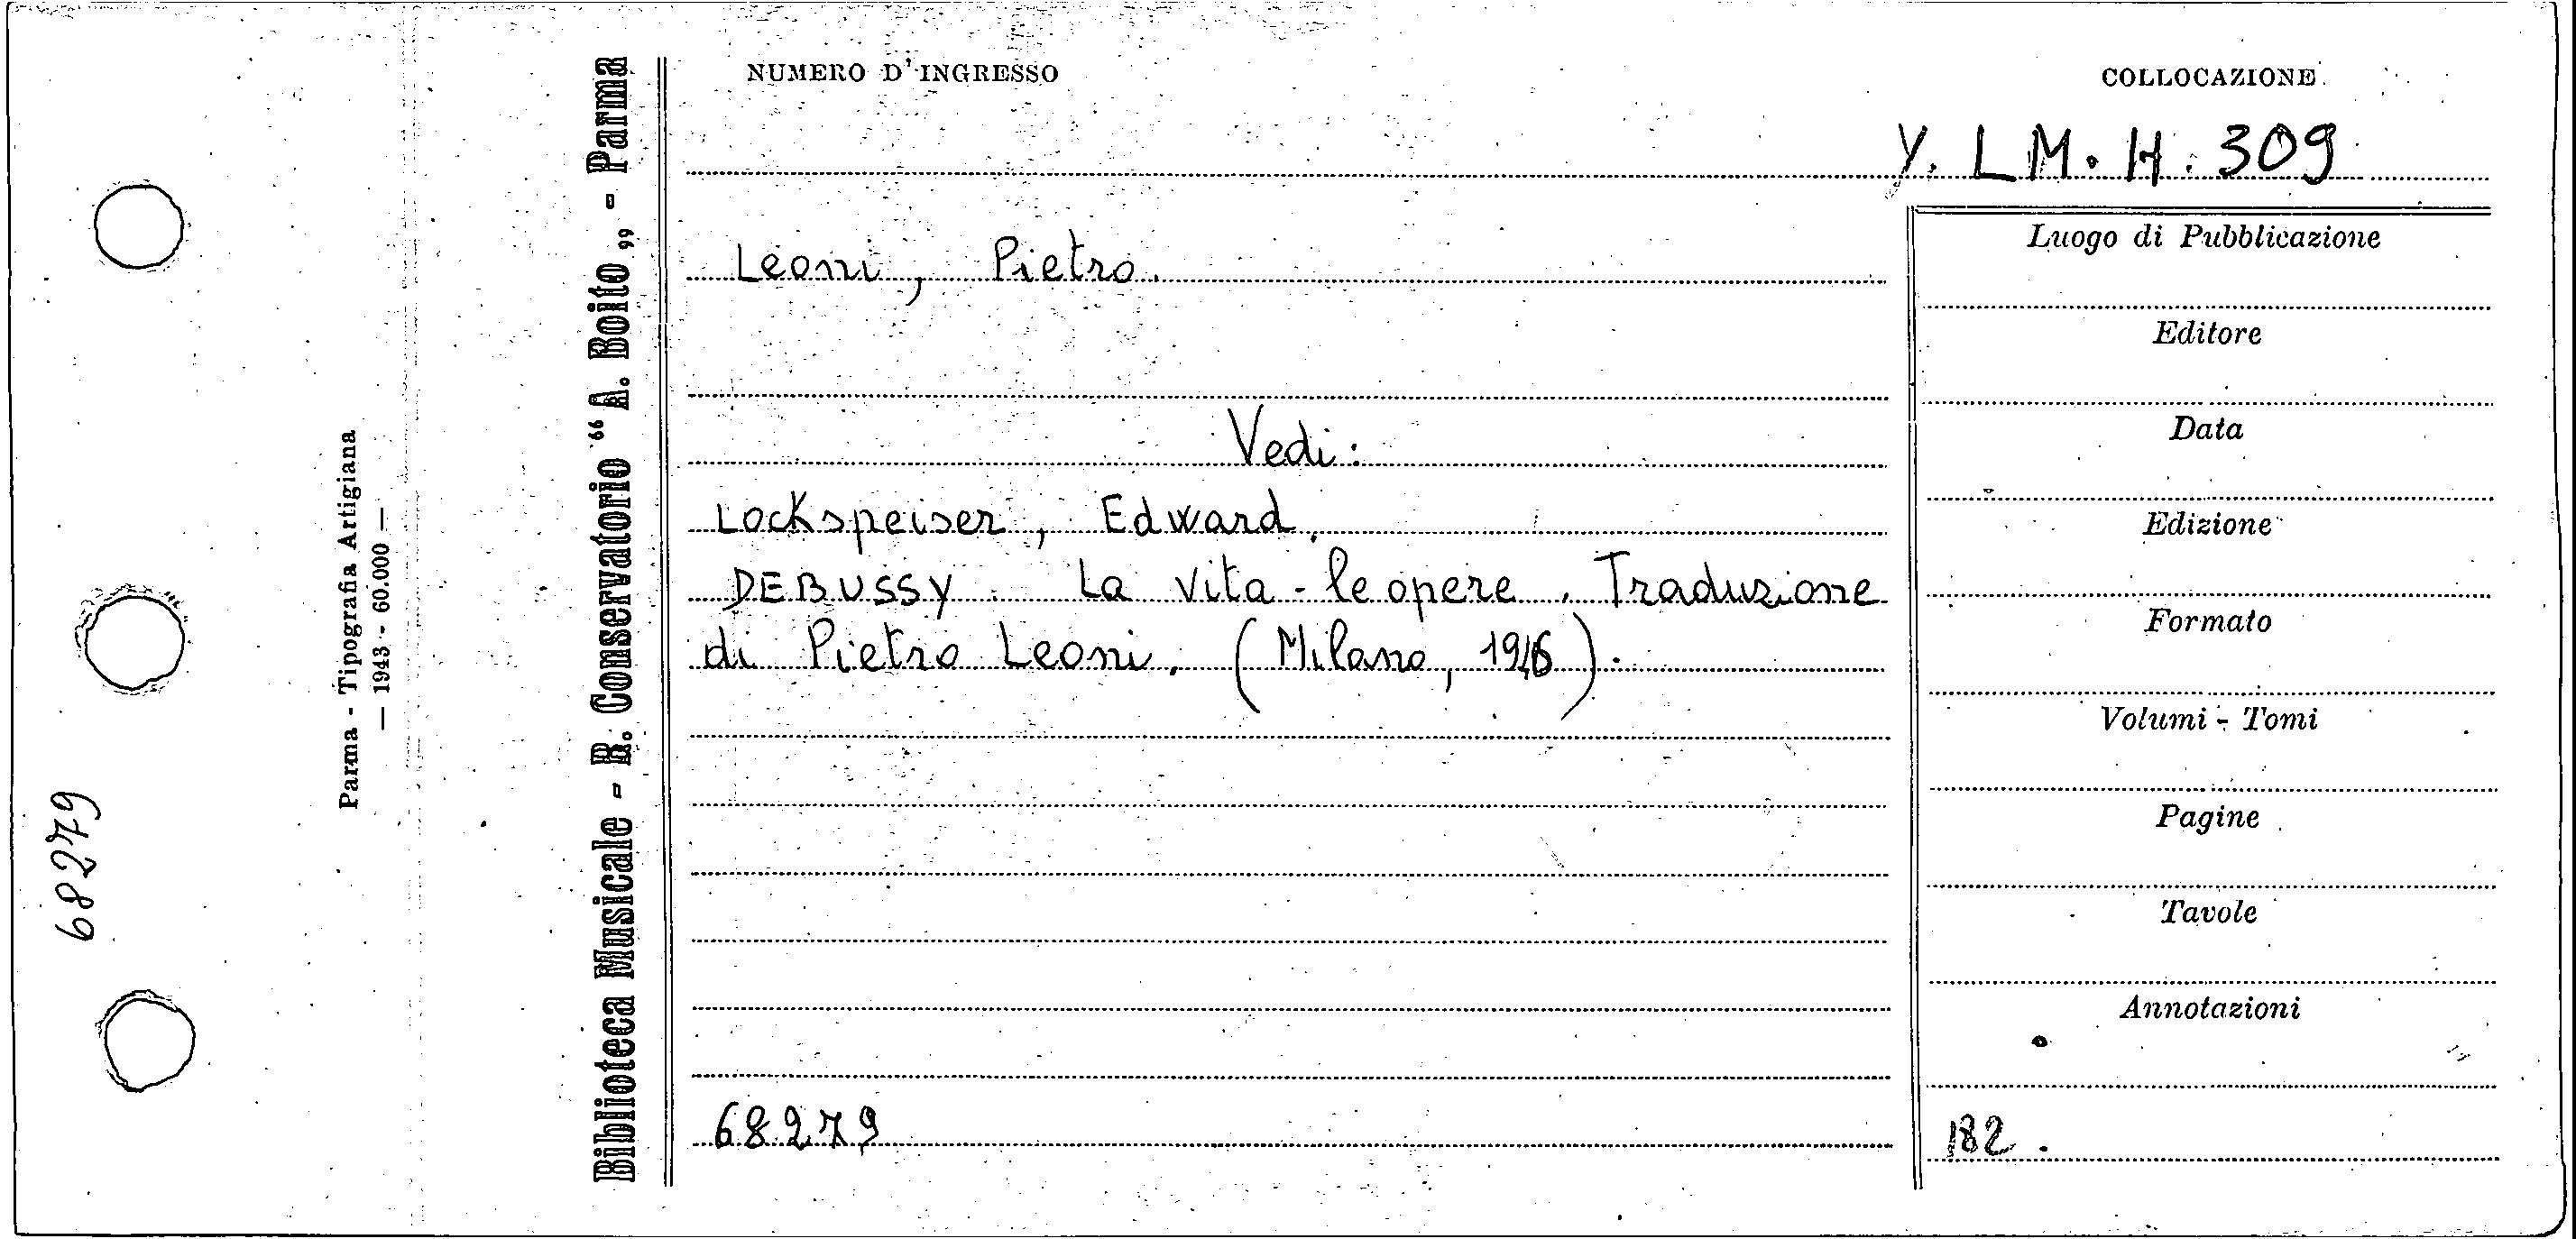 NUMERO D'INGRESSO
COLLOCAZIONE
Y. LM. H. 309
Leoni, Pietro.
Vedi:
Lockspeiser, Edward.
DEBUSSY. La vita - le opere. Traduzione
di Pietro Leoni. (Milano, 1946).
68279
Luogo di Pubblicazione
Editore
Data
Edizione
Formato
Volumi - Tomi
Pagine
Tavole
Annotazioni
182.
Biblioteca Musicale - R. Conservatorio "A. Boito„ - Parma
Parma - Tipografia Artigiana
— 1943 - 60.000 —
68279